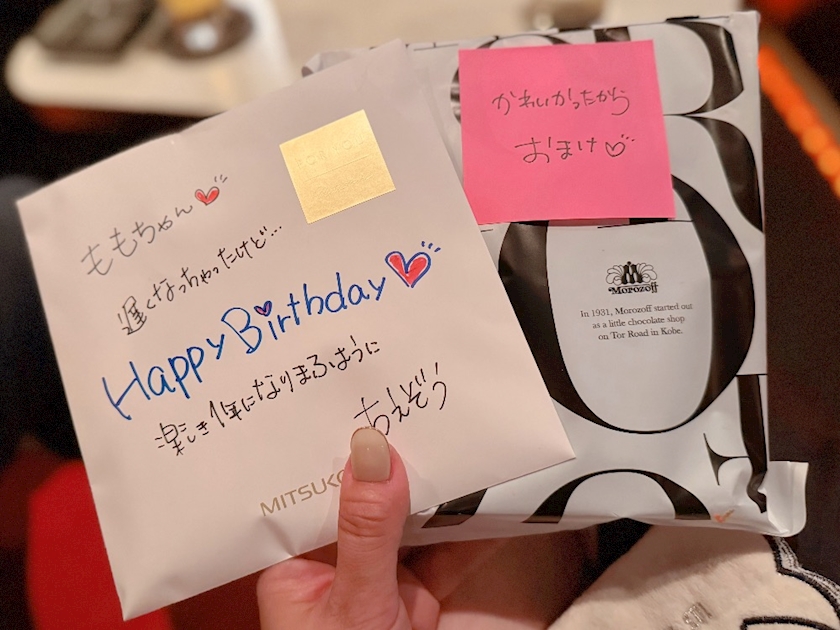 ももちゃん
遅くなっちゃったけど…
Happy Birthday
楽しき1年になりまるように
ちえぞう
MITSUKO
かわいかったから
おまけ♡
Morozoff
In 1931, Morozoff started out
as a little chocolate shop
on Tor Road in Kobe.